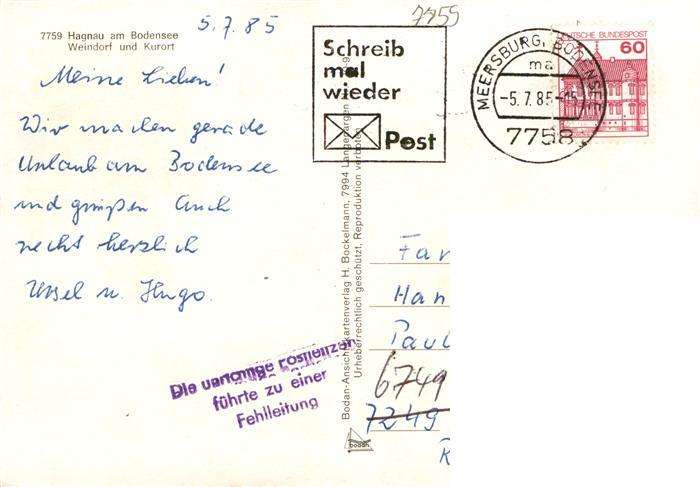 7759 Hagnau am Bodensee
Weindorf und Kurort
5.7.85
Meine Lieben!
Wir machen gerade
Urlaub am Bodensee
und grüßen Euch
recht herzlich
Ursel u. Hugo.
7759
Schreib
mal
wieder
Post
MEERSBURG, BODENSEE
ma
-5.7.85-15
7758
DEUTSCHE BUNDESPOST
60
Bodan-Ansichtskartenverlag H. Bockelmann, 7994 Langenargen
Urheberrechtlich geschützt. Reproduktion verboten
bodan
Fam
Han
Paul
6749
7249
R
Die unrichtige Postleitzahl
führte zu einer
Fehlleitung